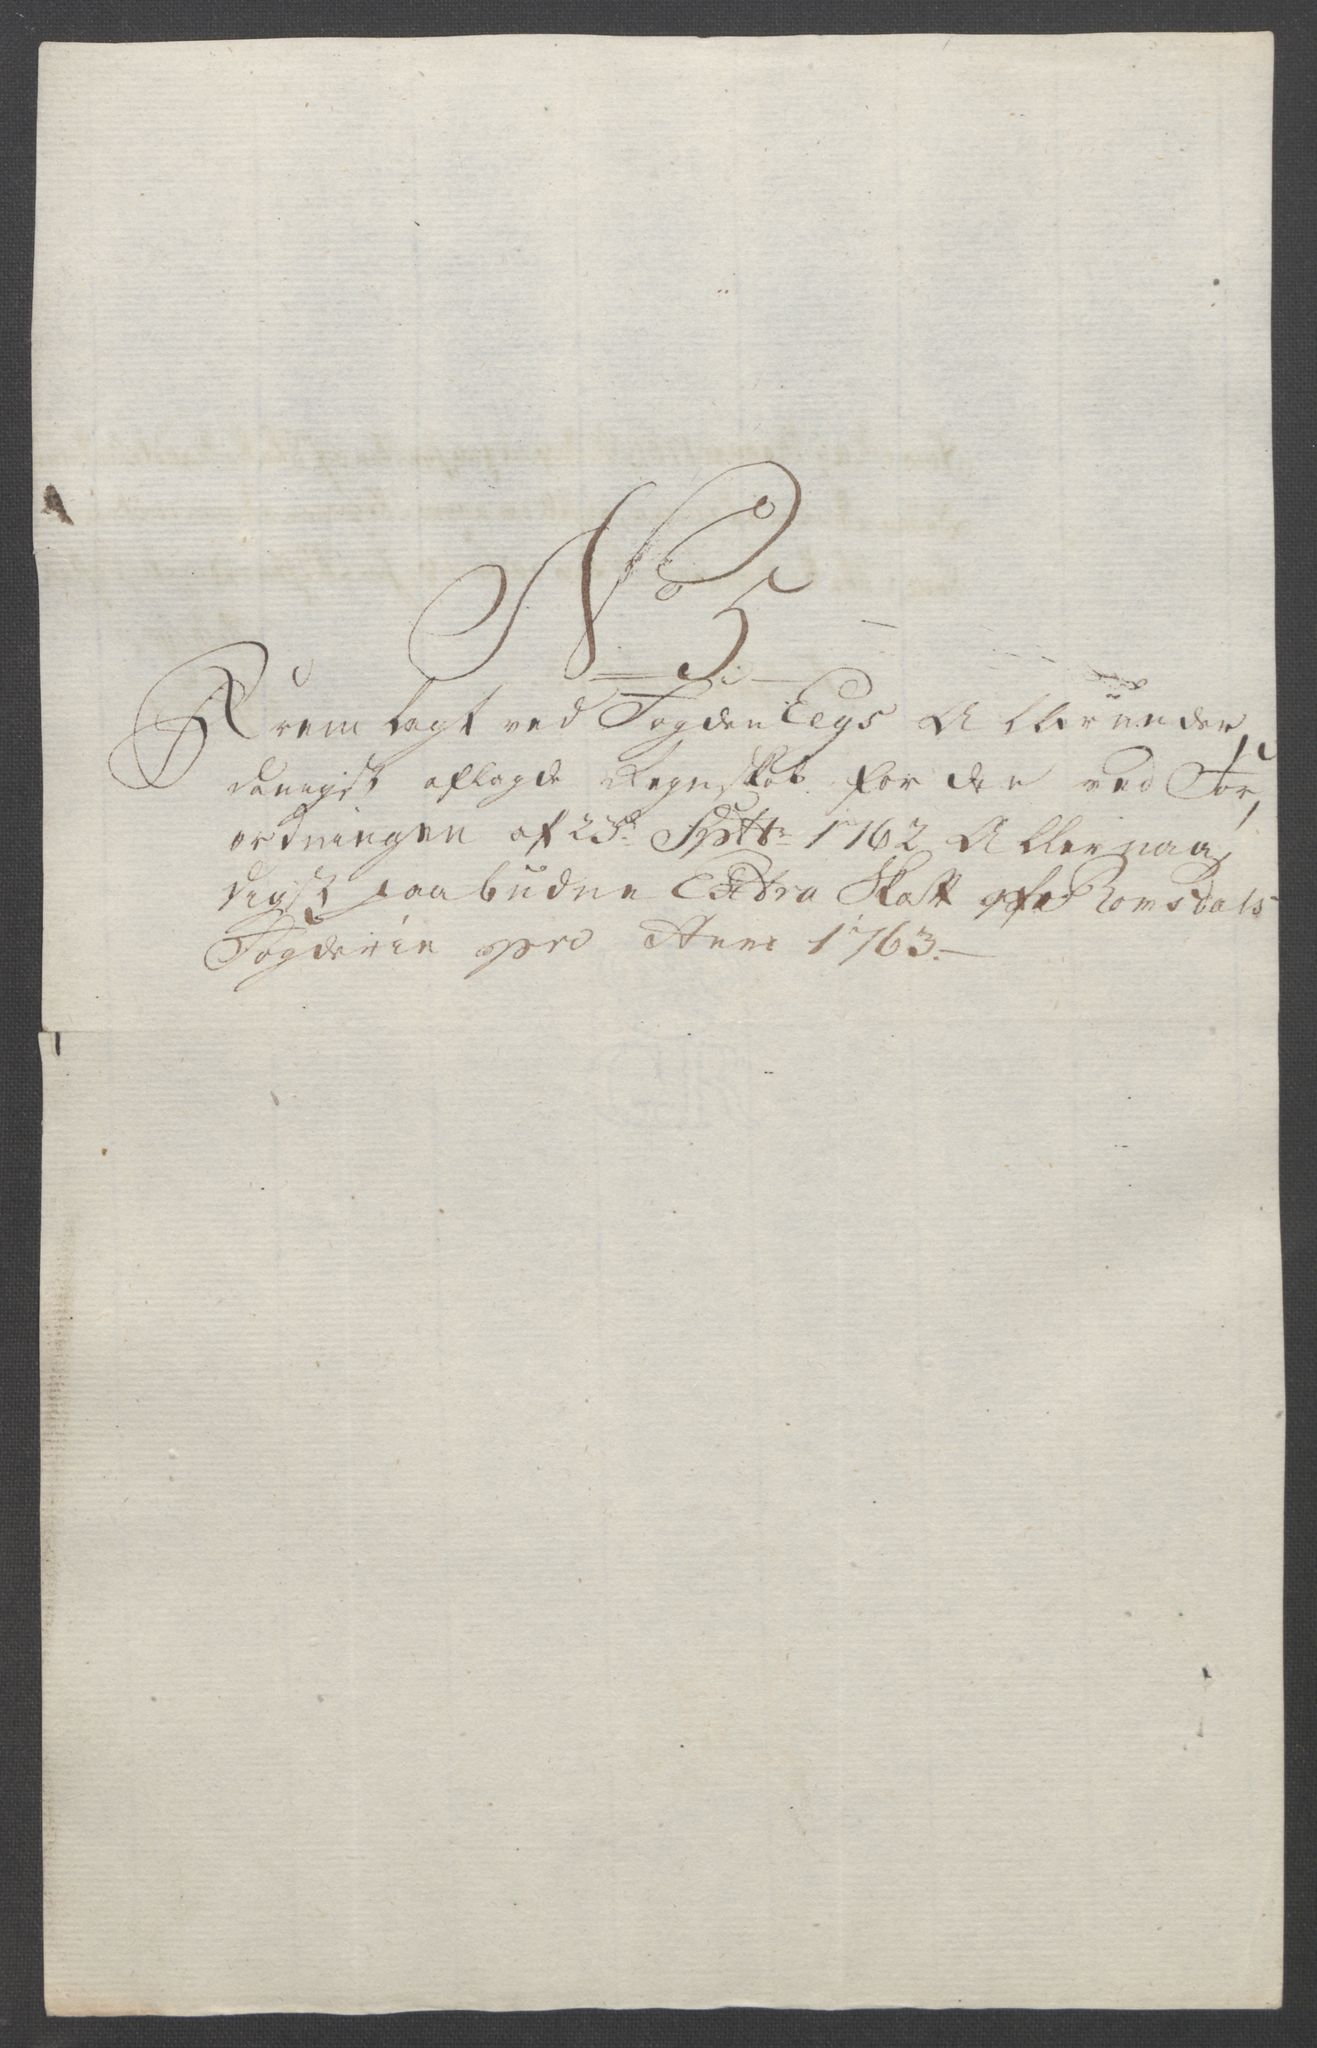 No 5
Fremlagt ved Fogden Eegs Allerunder,
danigst aflagde Regnskab for den ved For,
ordningen af 23de Septbr 1762 Allernaa,
digst paabudne Extra Skatt af Romsdals
Fogderie pro Anno 1763.